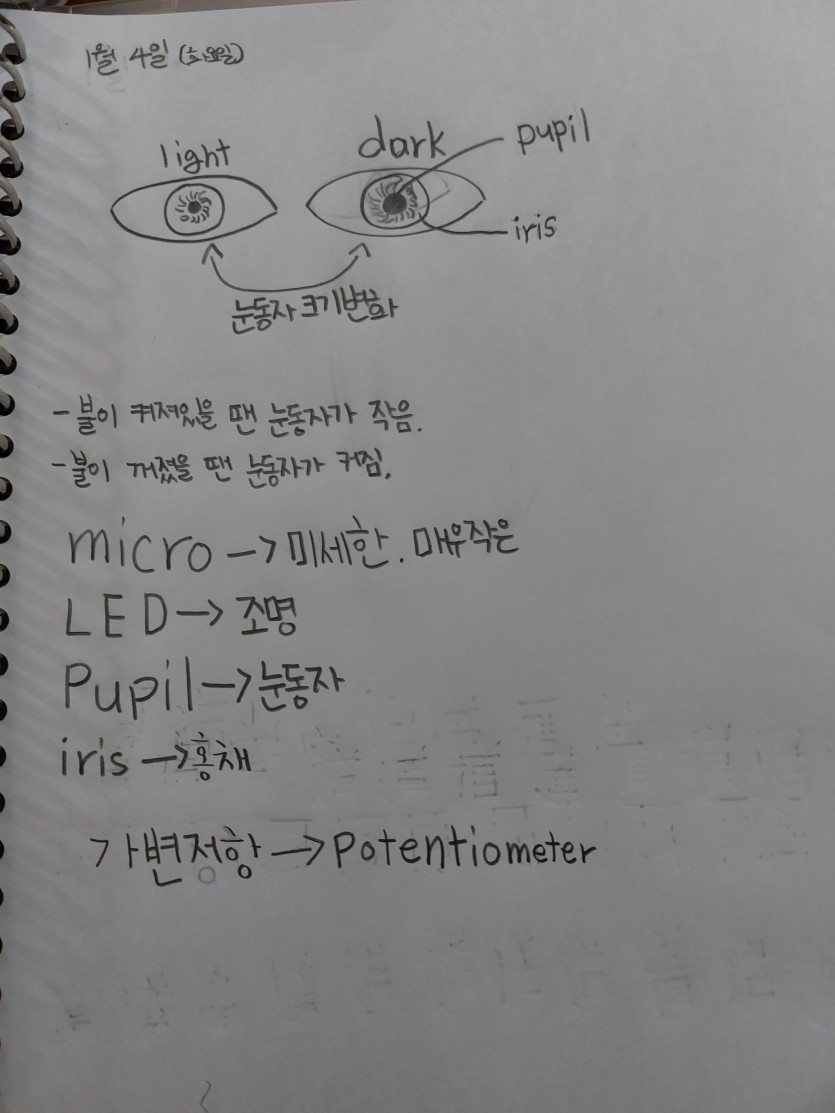 1월 4일 (화요일)
light
dark
pupil
iris
눈동자 크기변화
- 불이 켜져있을 땐 눈동자가 작음.
- 불이 꺼졌을 땐 눈동자가 커짐.
micro → 미세한. 매우작은
LED → 조명
Pupil → 눈동자
iris → 홍채
가변저항 → Potentiometer